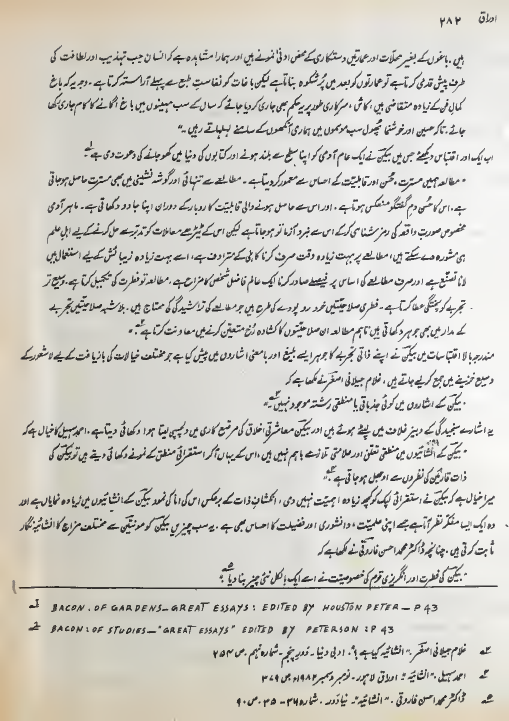 اوراق ۲۸۲
ہیں۔ باغوں کے بغیر محلات اور عمارتیں دستکاری کے محض ادنیٰ نمونے ہیں اور ہمارا مشاہدہ ہے کہ انسان جب تہذیب اور لطافت کی
طرف پیش قدمی کرتا ہے تو عمارتوں کو بعد میں پُرشکوہ بناتا ہے لیکن باغات کو نفاستِ طبع سے پہلے آراستہ کرتا ہے۔ وجہ یہ کہ باغ
کمالِ فن کے زیادہ متقاضی ہیں، کاش، سرکاری طور پر یہ حکم بھی جاری کر دیا جائے کہ سال کے سب مہینوں میں باغ اُگانے کا کام جاری رکھا
جائے۔ تاکہ حسین اور خوشنما پھول سب موسموں میں ہماری آنکھوں کے سامنے لہلہاتے رہیں۔"
اب ایک اور اقتباس دیکھئے جس میں بیکن نے ایک عام آدمی کو اپنا سطح سے بلند ہونے اور کتابوں کی دنیا میں کھو جانے کی دعوت دی ہے
"مطالعہ ہمیں مسرت، حُسن اور قابلیت کے احساس سے معمور کر دیتا ہے۔ مطالعے سے تنہائی اور گوشہ نشینی میں بھی مسرت حاصل ہو جاتی
ہے، اس کا حُسن دمِ گفتگو منعکس ہوتا ہے، اور اس سے حاصل ہونے والی قابلیت کاروبار کے دوران اپنا جادو دکھاتی ہے۔ ماہر آدمی
مخصوص صورتِ واقعہ کی رمز شناسی کر کے اس سے نبرد آزما تو ہو جاتا ہے لیکن اس کے ٹیڑھے معاملات کو تدبر سے حل کرنے کے لیے اہلِ علم
ہی مشورہ دے سکتے ہیں، مطالعے پر بہت زیادہ وقت صرف کرنا کاہلی کے مترادف ہے، اسے بہت زیادہ زیبائش کے لیے استعمال میں
لانا تصنع ہے اور صرف مطالعے کی اساس پر فیصلے صادر کرنا ایک عالم فاضل شخص کا مزاج ہے۔ مطالعہ تو فطرت کی تکمیل کرتا ہے۔ وسیع تر
تجربے کو پختگی عطا کرتا ہے۔ فطری صلاحیتیں خود رو پودے کی طرح ہیں جو مطالعے کی تراشیدگی کی محتاج ہیں۔ بلاشبہ صلاحیتیں تجربے
کے مدار میں بھی جوہر دکھاتی ہیں تاہم مطالعہ ان صلاحیتوں کا کشادہ رُخ متعین کرنے میں معاونت کرتا ہے"
مندرجہ بالا اقتباسات میں بیکن نے اپنے ذاتی تجربے کا جوہر ایسے بلیغ اور بامعنی اشاروں میں پیش کیا ہے جو مختلف خیالات کی بازیافت کے لیے لاشعور کے
وسیع خزینے میں جمع کر لیے جاتے ہیں۔ غلام جیلانی اصغر نے لکھا ہے کہ
"بیکن کے اشاروں میں کوئی جذباتی یا منطقی رشتہ موجود نہیں"
یہ اشارے سنجیدگی کے دبیز غلاف میں لپٹے ہوتے ہیں اور بیکن معاشرتی اخلاق کی مرقع کاری میں دلچسپی لیتا ہوا دکھائی دیتا ہے۔ احمد سہیل کا خیال ہے کہ
"بیکن کے انشائیوں میں منطقی تعقل اور علامتی تلازمے باہم نہیں ہیں، اس کے یہاں ہم اگر استقرائی منطق کے نمونے دکھائی دیتے ہیں تو بیکن کی
ذات قارئین کی نظروں سے اوجھل ہو جاتی ہے"
میرا خیال ہے کہ بیکن نے استقرائی لپک کو کچھ زیادہ اہمیت نہیں دی، انکشافِ ذات کے برعکس اس کی انا کی نمود بیکن کے انشائیوں میں زیادہ نمایاں ہے اور
وہ ایک ایسا مفکر نظر آتا ہے جسے اپنی علمیت، دانشوری اور فضیلت کا احساس بھی ہے۔ یہ سب چیزیں بیکن کو مونتین سے مختلف مزاج کا انشائیہ نگار
ثابت کرتی ہیں۔ چنانچہ ڈاکٹر محمد احسن فاروقی نے لکھا ہے کہ
"بیکن کی فطرت اور انگریزی قوم کی خصوصیت نے اسے ایک بالکل نئی چیز بنا دیا"
۱ BACON. OF GARDENS—GREAT ESSAYS: EDITED BY HOUSTON PETER—P 43
۲ BACON: OF STUDIES—"GREAT ESSAYS" EDITED BY PETERSON: P 43
۳ غلام جیلانی اصغر۔ "انشائیہ کیا ہے؟"۔ ادبی دنیا۔ دورِ پنجم۔ شمارہ نہم۔ ص ۲۵۳
۴ احمد سہیل۔ "انشائیہ"۔ اوراق لاہور۔ نومبر دسمبر ۱۹۸۲ء ص ۳۷۹
۵ ڈاکٹر محمد احسن فاروقی۔ "انشائیہ"۔ نیا دور۔ شمارہ ۳۶-۳۵۔ ص ۹۰